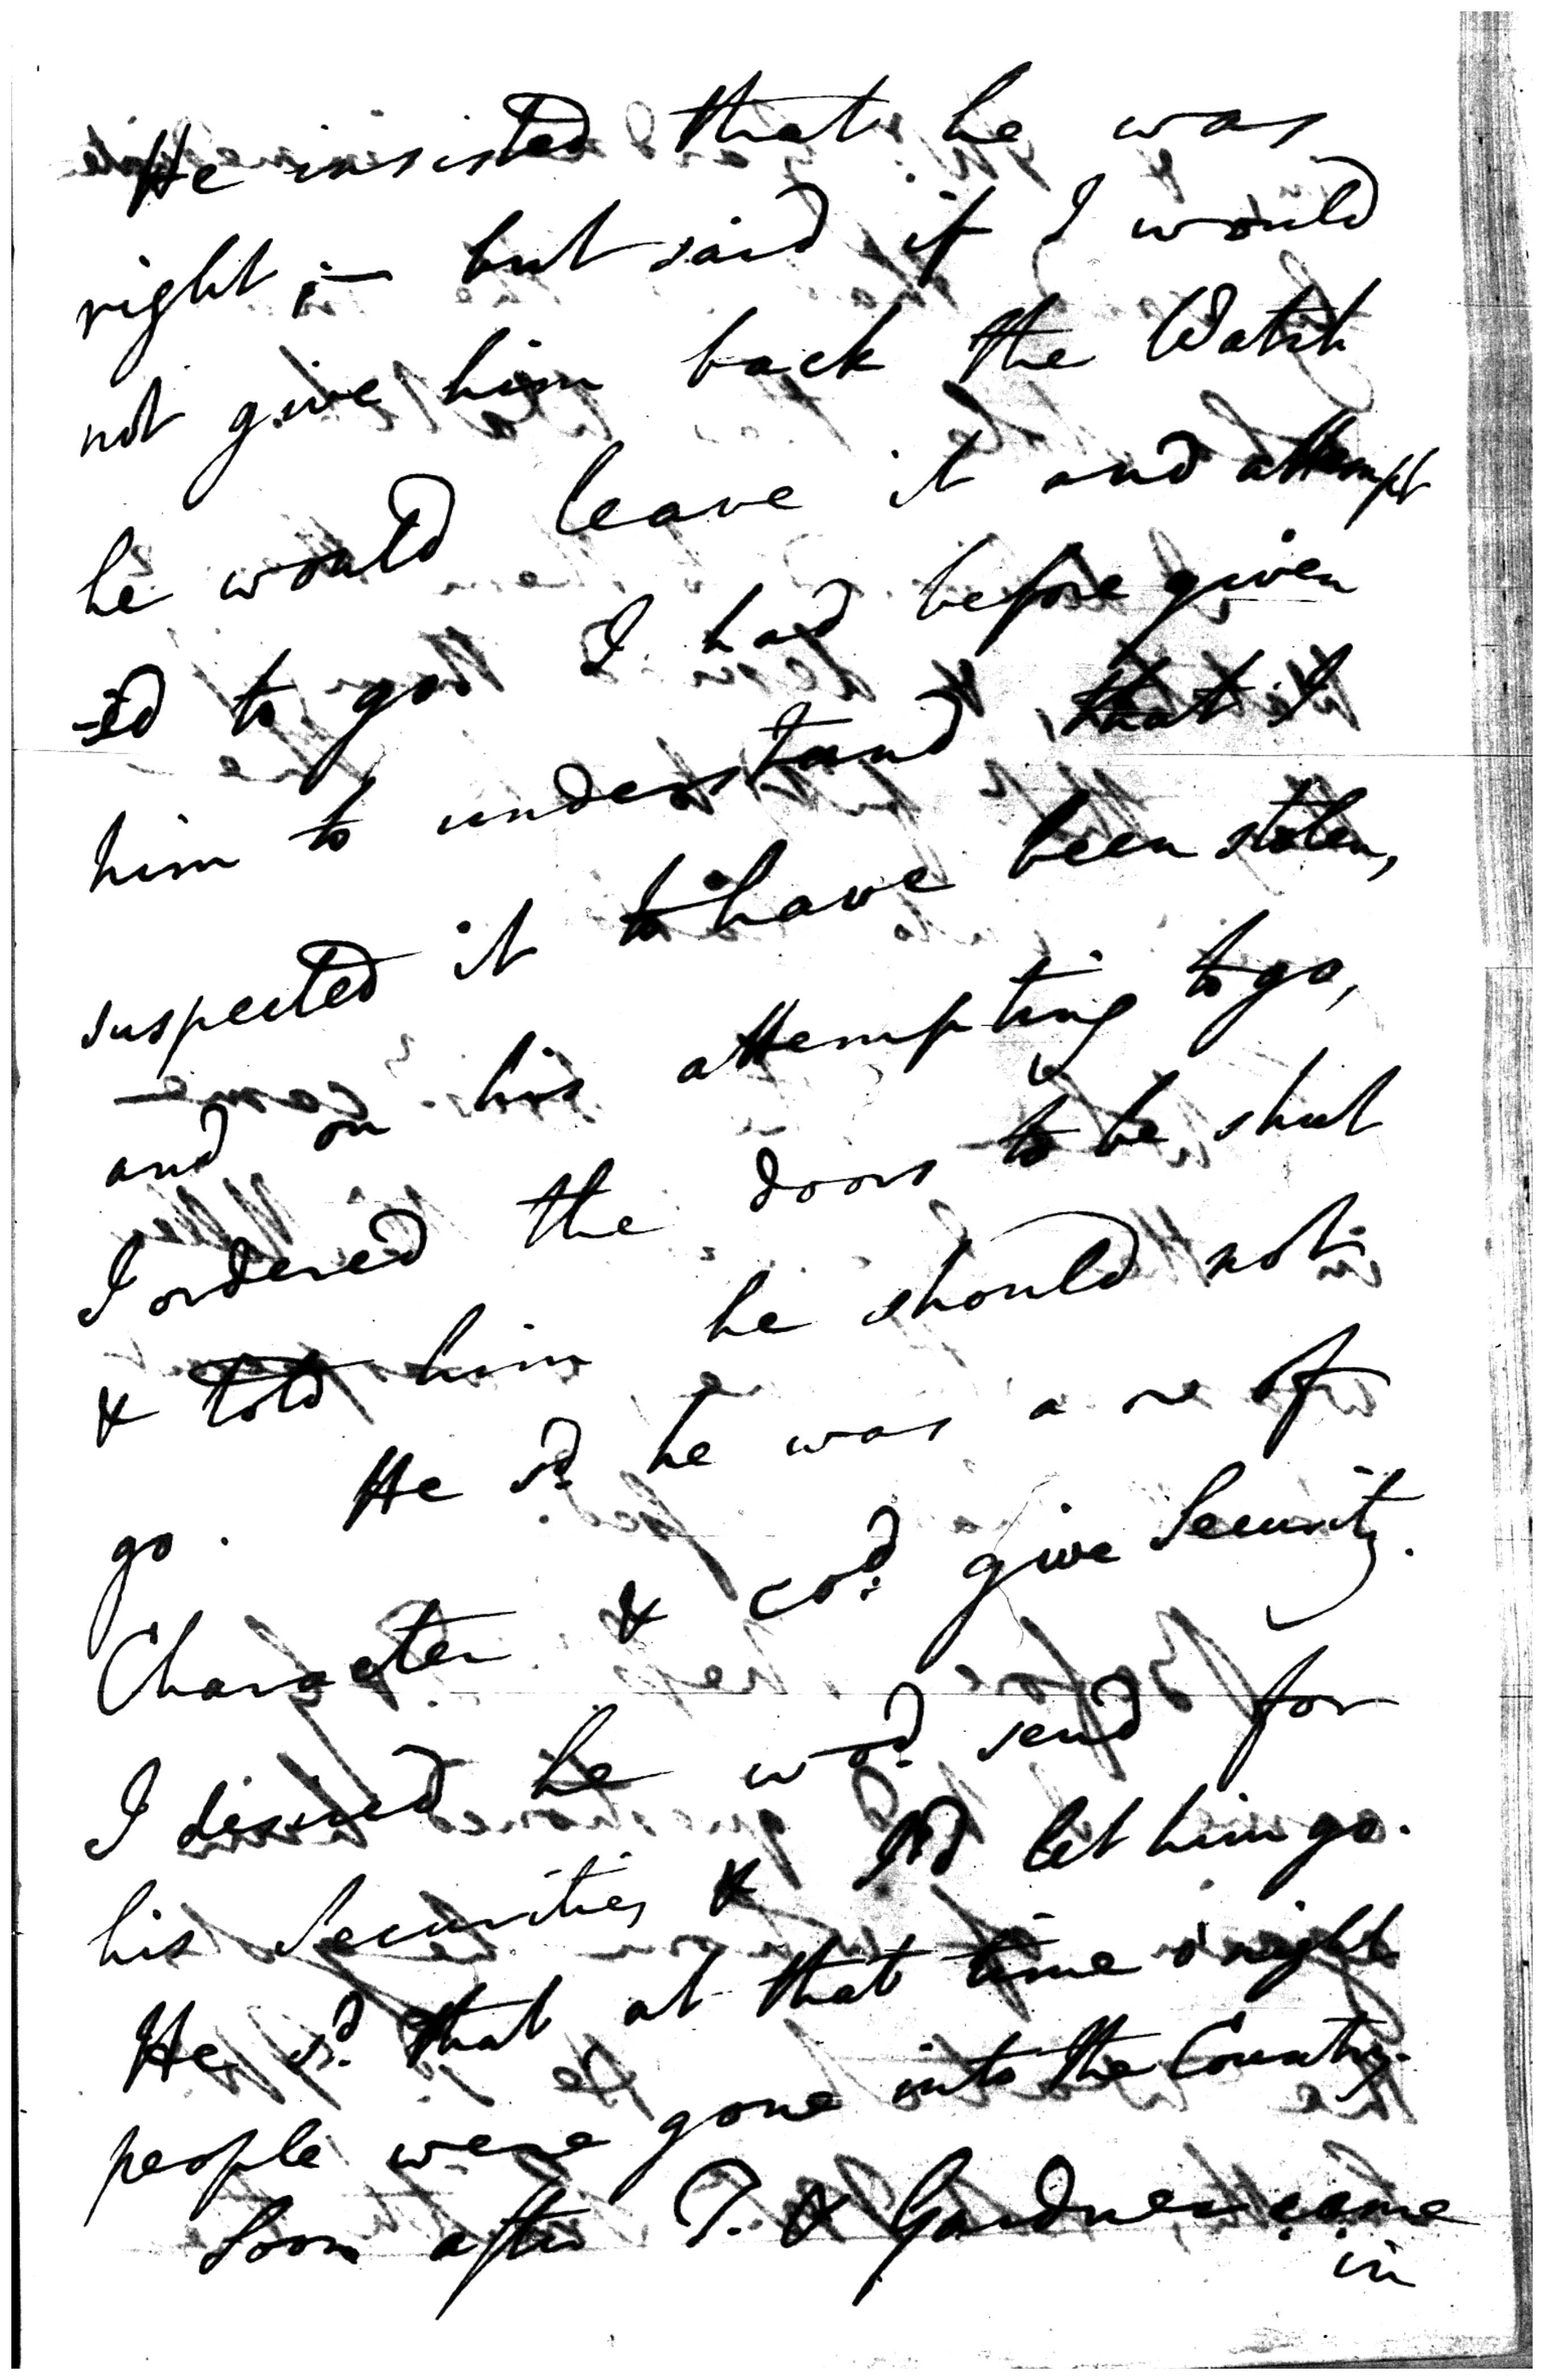 He insisted that he was
right ;— but said if I would
not give him back the Watch
he would leave it and attempt
-ed to go. I had before given
him to understand that I
suspected it to have been stolen,
and on his attempting to go,
I ordered the doors to be shut
& told him he should not
go. He sd. he was a of
Character & cod. give Security.
I desired he wod. send for
his Securities & I'd let him go.
He sd. that at that time o'night
people were gone into the Country.
Soon after T. & Gardner came
in